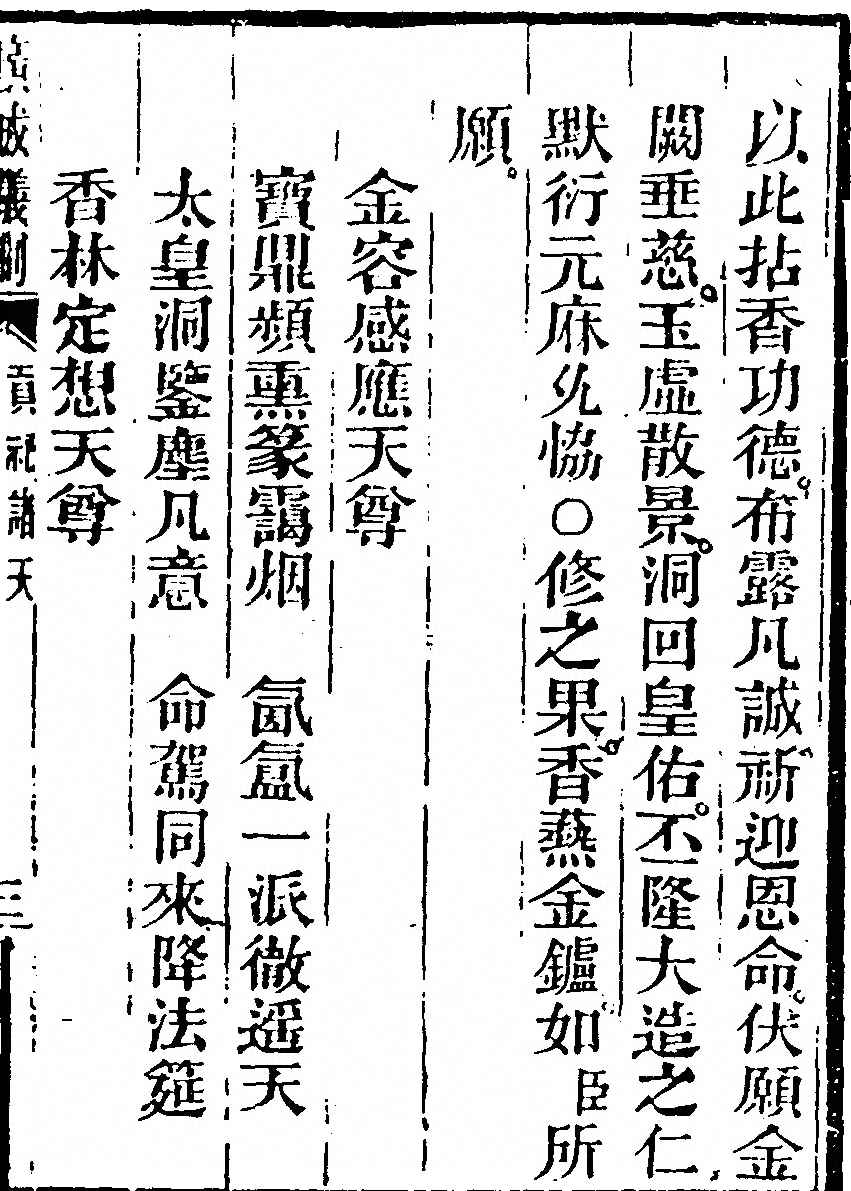 以此拈香功德。布露凡誠。祈迎恩命。伏願金
闕垂慈。玉虛散景。洞回皇佑。丕隆大造之仁
默衍元庥允協〇修之果。香爇金鑪如臣所
願。
金容感應天尊
寶鼎頻熏篆靄烟　氤氳一派徹遥天
太皇洞鑒塵凡意　命駕同來降法筵
香林定想天尊
廣成儀制　貢祀諸天　三